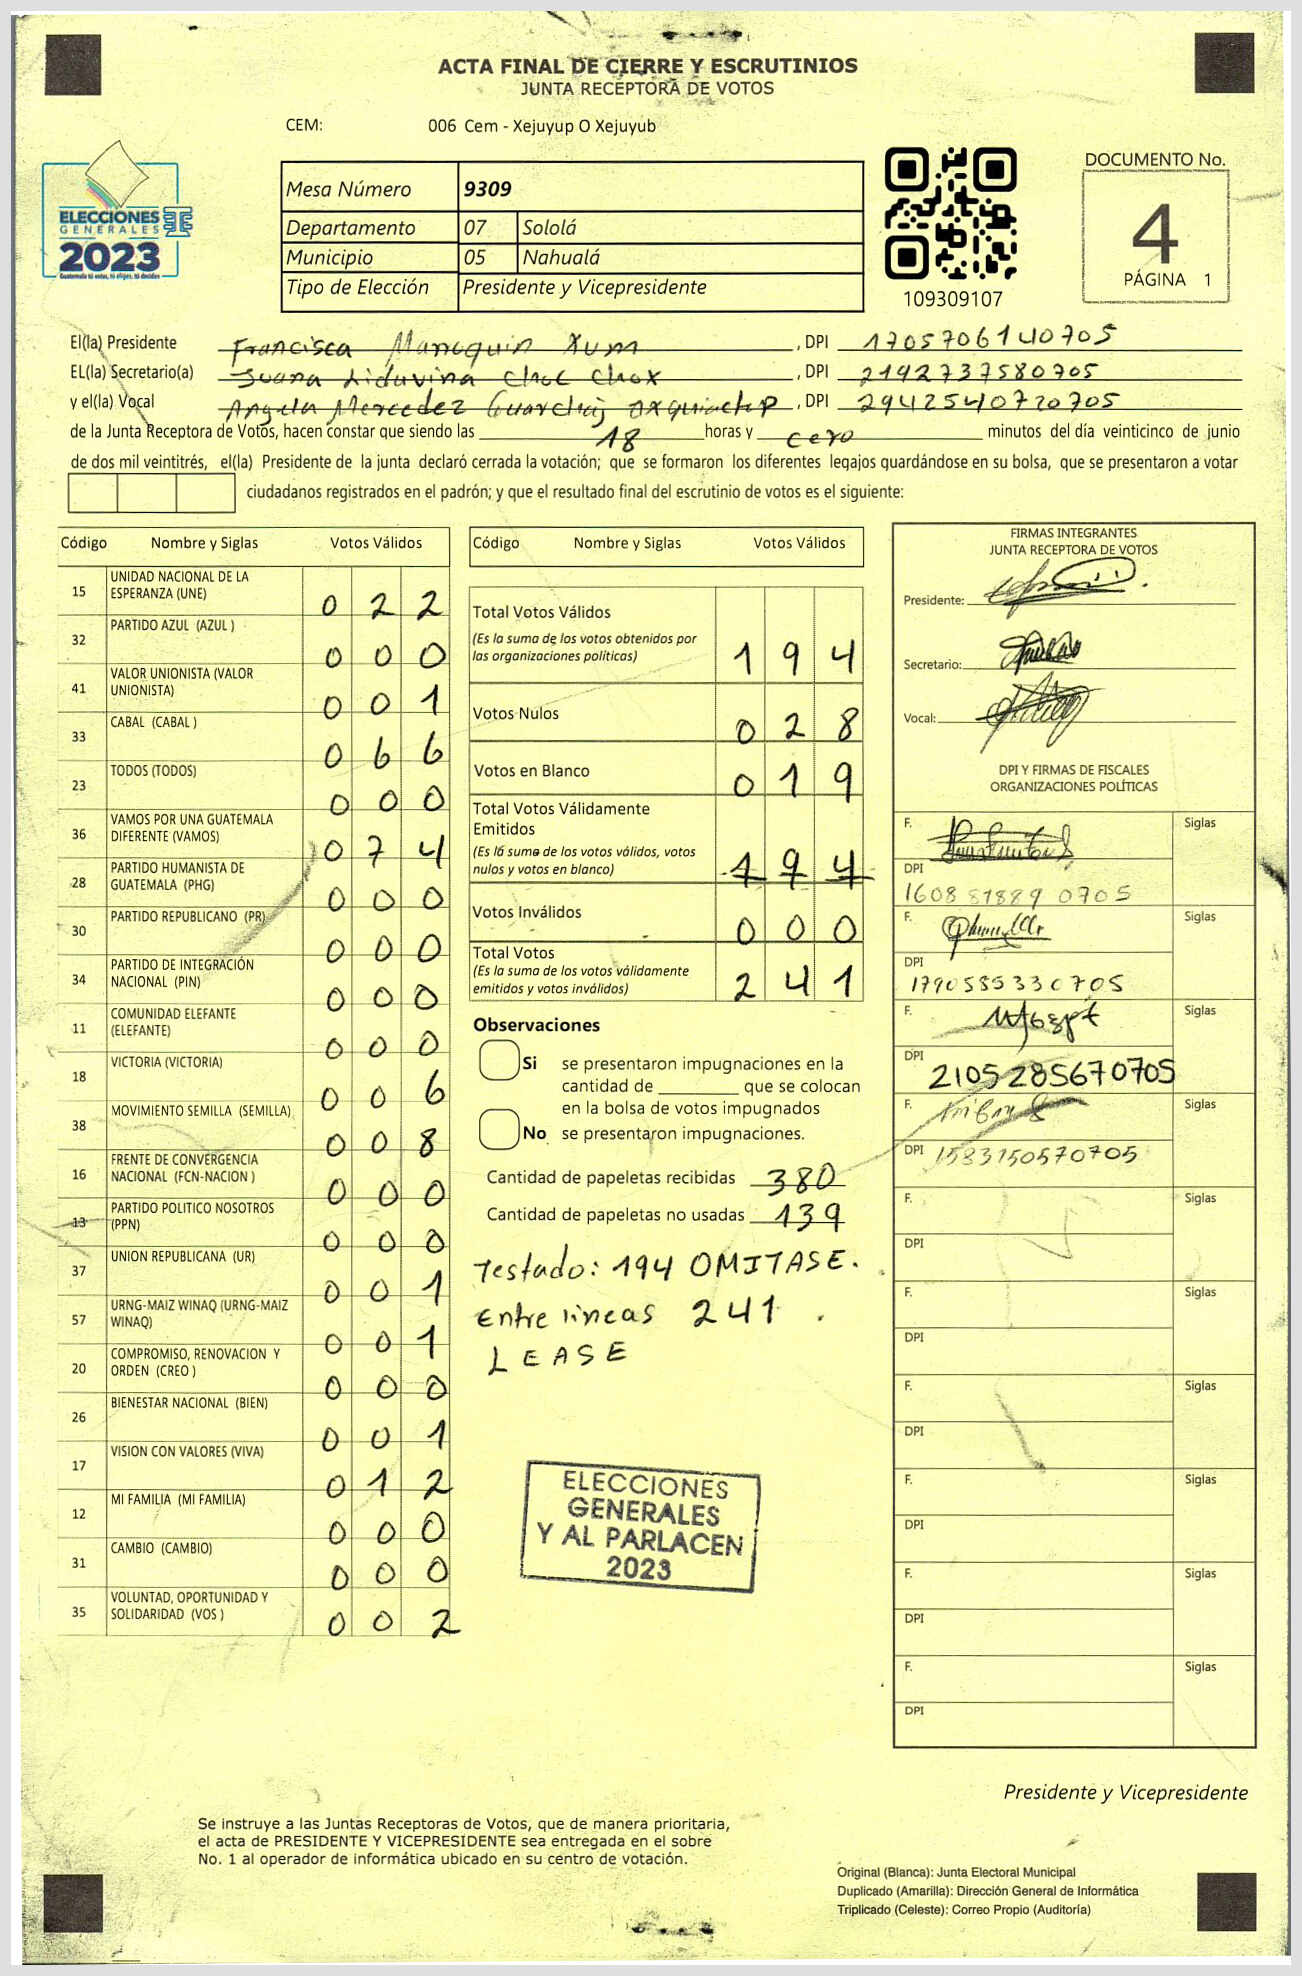 ACTA FINAL DE CIERRE Y ESCRUTINIOS
JUNTA RECEPTORA DE VOTOS
CEM: 006 Cem - Xejuyup O Xejuyub
ELECCIONES
GENERALES
2023
Guatemala tú votas, tú eliges, tú decides
Mesa Número 9309
Departamento 07 Sololá
Municipio 05 Nahualá
Tipo de Elección Presidente y Vicepresidente
109309107
DOCUMENTO No.
4
PÁGINA 1
El(la) Presidente Francisca Xum , DPI 1705706140705
EL(la) Secretario(a) Juana Liduvina Choc Chox , DPI 2192737580705
y el(la) Vocal Angela Mercedez , DPI 2942540720705
de la Junta Receptora de Votos, hacen constar que siendo las 18 horas y cero minutos del día veinticinco de junio
de dos mil veintitrés, el(la) Presidente de la junta declaró cerrada la votación; que se formaron los diferentes legajos quardándose en su bolsa, que se presentaron a votar
ciudadanos registrados en el padrón; y que el resultado final del escrutinio de votos es el siguiente:
Código Nombre y Siglas Votos Válidos
15 UNIDAD NACIONAL DE LA ESPERANZA (UNE) 0 2 2
32 PARTIDO AZUL (AZUL ) 0 0 0
41 VALOR UNIONISTA (VALOR UNIONISTA) 0 0 1
33 CABAL (CABAL ) 0 6 6
23 TODOS (TODOS) 0 0 0
36 VAMOS POR UNA GUATEMALA DIFERENTE (VAMOS) 0 7 4
28 PARTIDO HUMANISTA DE GUATEMALA (PHG) 0 0 0
30 PARTIDO REPUBLICANO (PR) 0 0 0
34 PARTIDO DE INTEGRACIÓN NACIONAL (PIN) 0 0 0
11 COMUNIDAD ELEFANTE (ELEFANTE) 0 0 0
18 VICTORIA (VICTORIA) 0 0 6
38 MOVIMIENTO SEMILLA (SEMILLA) 0 0 8
16 FRENTE DE CONVERGENCIA NACIONAL (FCN-NACION ) 0 0 0
13 PARTIDO POLITICO NOSOTROS (PPN) 0 0 0
37 UNION REPUBLICANA (UR) 0 0 1
57 URNG-MAIZ WINAQ (URNG-MAIZ WINAQ) 0 0 1
20 COMPROMISO, RENOVACION Y ORDEN (CREO ) 0 0 0
26 BIENESTAR NACIONAL (BIEN) 0 0 1
17 VISION CON VALORES (VIVA) 0 1 2
12 MI FAMILIA (MI FAMILIA) 0 0 0
31 CAMBIO (CAMBIO) 0 0 0
35 VOLUNTAD, OPORTUNIDAD Y SOLIDARIDAD (VOS ) 0 0 2
Código Nombre y Siglas Votos Válidos
Total Votos Válidos
(Es la suma de los votos obtenidos por
las organizaciones politicas) 1 9 4
Votos Nulos 0 2 8
Votos en Blanco 0 1 9
Total Votos Válidamente
Emitidos
(Es lá suma de los votos válidos, votos
nulos y votos en blanco) 1 9 4
Votos Inválidos 0 0 0
Total Votos
(Es la suma de los votos válidamente
emitidos y votos inválidos) 2 4 1
Observaciones
Si se presentaron impugnaciones en la
cantidad de ________ que se colocan
en la bolsa de votos impugnados
No se presentaron impugnaciones.
Cantidad de papeletas recibidas 380
Cantidad de papeletas no usadas 139
Testado: 194 OMITASE.
Entre lineas 241 .
LEASE
ELECCIONES
GENERALES
Y AL PARLACEN
2023
FIRMAS INTEGRANTES
JUNTA RECEPTORA DE VOTOS
Presidente:
Secretario:
Vocal:
DPI Y FIRMAS DE FISCALES
ORGANIZACIONES POLÍTICAS
F. Siglas
DPI
1608 81889 0705
F. Siglas
DPI
1790585330705
F. Siglas
DPI
2105285670705
F. Siglas
DPI 1583150570705
F. Siglas
DPI
F. Siglas
DPI
F. Siglas
DPI
F. Siglas
DPI
F. Siglas
DPI
F. Siglas
DPI
Presidente y Vicepresidente
Se instruye a las Juntas Receptoras de Votos, que de manera prioritaria,
el acta de PRESIDENTE Y VICEPRESIDENTE sea entregada en el sobre
No. 1 al operador de informática ubicado en su centro de votación.
Original (Blanca): Junta Electoral Municipal
Duplicado (Amarilla): Dirección General de Informática
Triplicado (Celeste): Correo Propio (Auditoría)